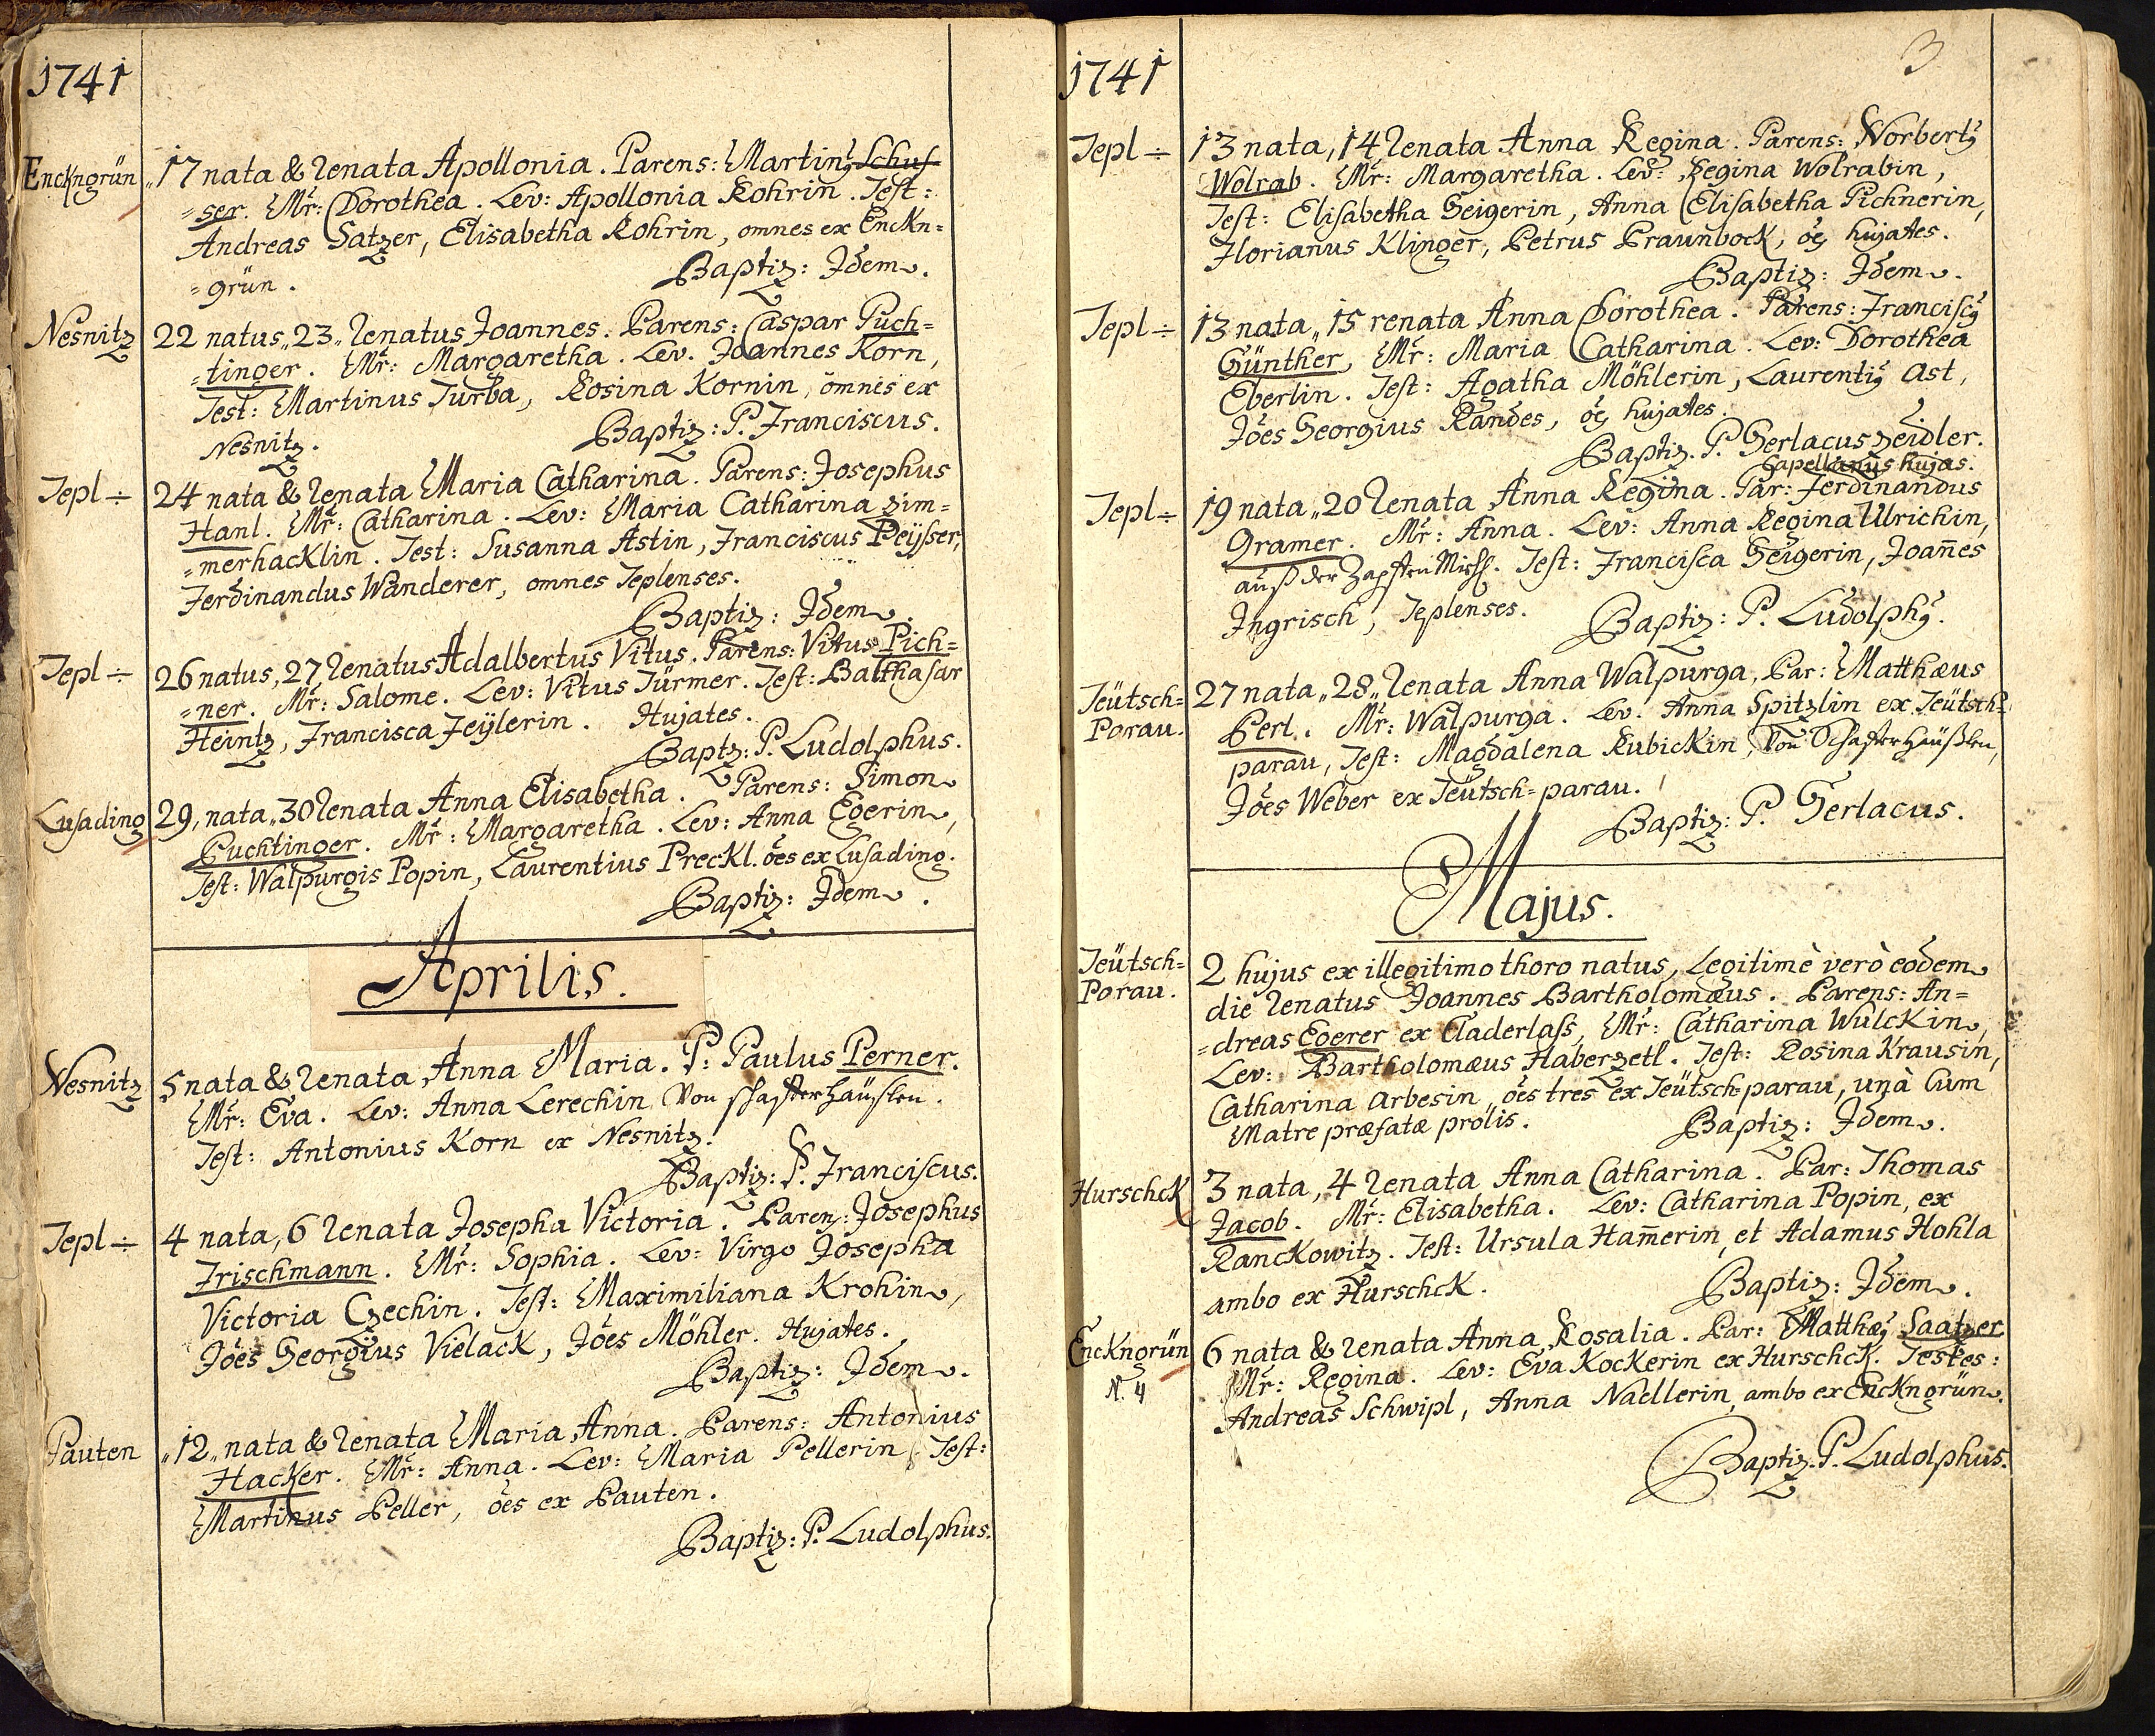 1741
Enckngrün
„17 nata & renata Apollonia. Parens: Martinȝ Schuf-
=ser. Mr̃: Dorothea. Lev: Apollonia Rohrin. Test:
Andreas Satzer, Elisabetha Rohrin, omnes ex Enckn=
=grün. Baptiz: Idem.
Nesnitz
22 natus„ 23„ renatus Joannes. Parens: Caspar Puch=
=tinger. Mr̃: Margaretha. Lev. Joannes Korn,
Test: Martinus Turba, Rosina Kornin, omnes ex
Nesnitz. Baptiz: P. Franciscus.
Tepl ÷
24 nata & renata Maria Catharina. Parens: Josephus
Hanl. Mr̃: Catharina. Lev: Maria Catharina Zim=
=merhacklin. Test: Susanna Astin, Franciscus Peÿsser,
Ferdinandus Wanderer, omnes Teplenses.
Baptiz: Idem.
Tepl ÷
26 natus, 27 renatus Adalbertus Vitus. Parens: Vitus Pich=
=ner. Mr̃: Salome. Lev: Vitus Türmer. Test: Balthasar
Heintz, Francisca Feÿlerin. Hujates.
Baptz: P. Ludolphus.
Lusading
29, nata„ 30 renata Anna Elisabetha. Parens: Simon
Puchtinger. Mr̃: Margaretha. Lev: Anna Egerin,
Test: Walpurgis Popin, Laurentius Preckl. ões ex Lusading.
Baptiz: Idem.
Aprilis.
Nesnitz
5 nata & renata Anna Maria. P: Paulus Perner.
Mr̃: Eva. Lev: Anna Lerechin Von schaffterhäußlen.
Test: Antonius Korn ex Nesnitz.
Baptiz: P. Franciscus.
Tepl ÷
4 nata, 6 renata Josepha Victoria. Parens: Josephus
Frischmann. Mr̃: Sophia. Lev: Virgo Josepha
Victoria Czechin. Test: Maximiliana Krohin,
Jões Georgius Vielack, Jões Möhler. Hujates.
Baptiz: Idem.
Pauten
„12„ nata & renata Maria Anna. Parens: Antonius
Hacker. Mr̃: Anna. Lev: Maria Pellerin, Test:
Martinus Peller, ões ex Pauten.
Baptiz: P. Ludolphus.
1741
3
Tepl ÷
13 nata, 14 renata Anna Regina. Parens: Norbertȝ
Wolrab. Mr̃: Margaretha. Lev: Regina Wolrabin,
Test: Elisabetha Geigerin, Anna Elisabetha Pichnerin,
Florianus Klinger, Petrus Praunbock, ões hujates.
Baptiz: Idem.
Tepl ÷
13 nata„ 15 renata Anna Dorothea. Parens: Franciscȝ
Günther, Mr̃: Maria Catharina. Lev: Dorothea
Eberlin. Test: Agatha Möhlerin, Laurentiȝ Ast,
Jões Georgius Randes, ões hujates.
Baptiz. P. Gerlacus Zeidler.
Capellanus hujas.
Tepl ÷
19 nata„ 20 renata Anna Regina. Par: Ferdinandus
Gramer. Mr̃: Anna. Lev: Anna Regina Ulrichin,
auß der Zapffen Mühl. Test: Francisca Geigerin, Joañes
Ingrisch, Teplenses. Baptiz: P. Ludolphȝ.
Teütsch=
Porau.
27 nata„ 28„ renata Anna Walpurga, Par: Matthæus
Perl. Mr̃: Walpurga. Lev. Anna Spitzlin ex Teütsch=
parau, Test: Magdalena Kubickin, Von Schafferhäußlen,
Jões Weber ex Teütsch=parau.
Baptiz: P. Gerlacus.
Majus.
Teütsch=
Porau.
2 hujus ex illegitimo thoro natus, Legitimè verò eodem
die renatus Joannes Bartholomæus. Parens: An=
=dreas Egerer ex Claderlaß, Mr̃: Catharina Wulckin,
Lev: Bartholomæus Haberzetl. Test: Rosina Krausin,
Catharina Arbesin, ões tres ex Teütschparau, unà cum
Matre præfatæ prolis. Baptiz: Idem.
Hurschck
3 nata, 4 renata Anna Catharina. Par: Thomas
Jacob. Mr̃: Elisabetha. Lev: Catharina Popin, ex
Ranckowitz. Test: Ursula Ham̃erin, et Adamus Hohla
ambo ex Hurschck. Baptiz: Idem.
Enckngrün
N. 4
6 nata & renata Anna Rosalia. Par: Matthæȝ Saatzer
Mr̃: Regina. Lev: Eva Kockerin ex Hurschck. Testes:
Andreas Schwipl, Anna Nadlerin, ambo ex Enckngrün.
Baptiz. P. Ludolphus.